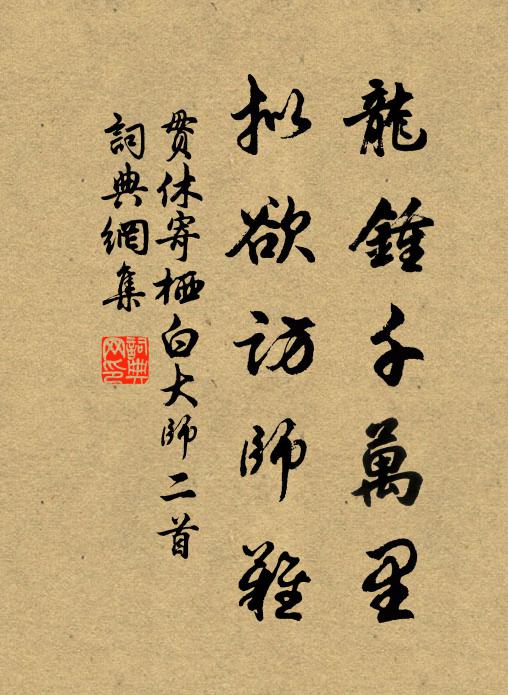 龍鍾千萬里
擬欲訪師難
貫休寄栖白大師二首
詞典網集
詞典网印